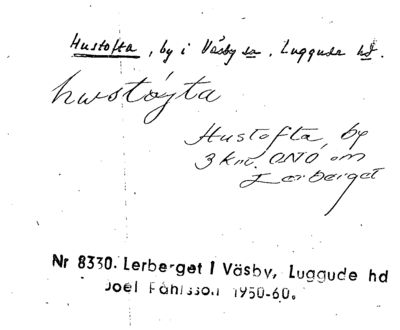 Hustofta, by i Väsby sn, Luggude hd.
hustøyta
Hustofta, by
3 km. ONO om
Lerberget
Nr 8330. Lerberget i Väsby, Luggude hd
Joel Påhlsson 1950-60.